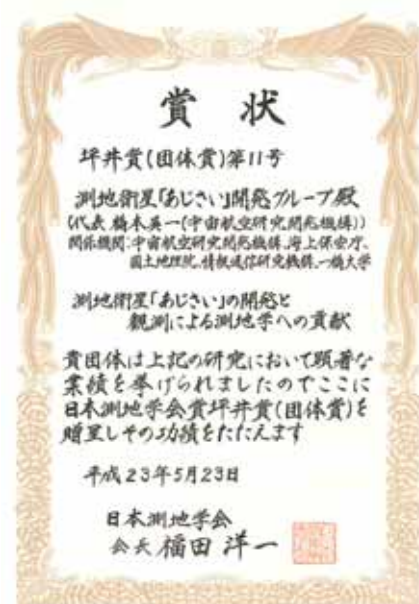 賞状
坪井賞(団体賞)第11号
測地衛星「あじさい」開発グループ殿
(代表 橋本英一(宇宙航空研究開発機構))
関係機関:宇宙航空研究開発機構、海上保安庁、
国土地理院、情報通信研究機構、一橋大学
測地衛星「あじさい」の開発と
観測による測地学への貢献
貴団体は上記の研究において顕著な
業績を挙げられましたのでここに
日本測地学会賞坪井賞(団体賞)を
贈呈しその功績をたたえます
平成23年5月23日
日本測地学会
会長 福田洋一